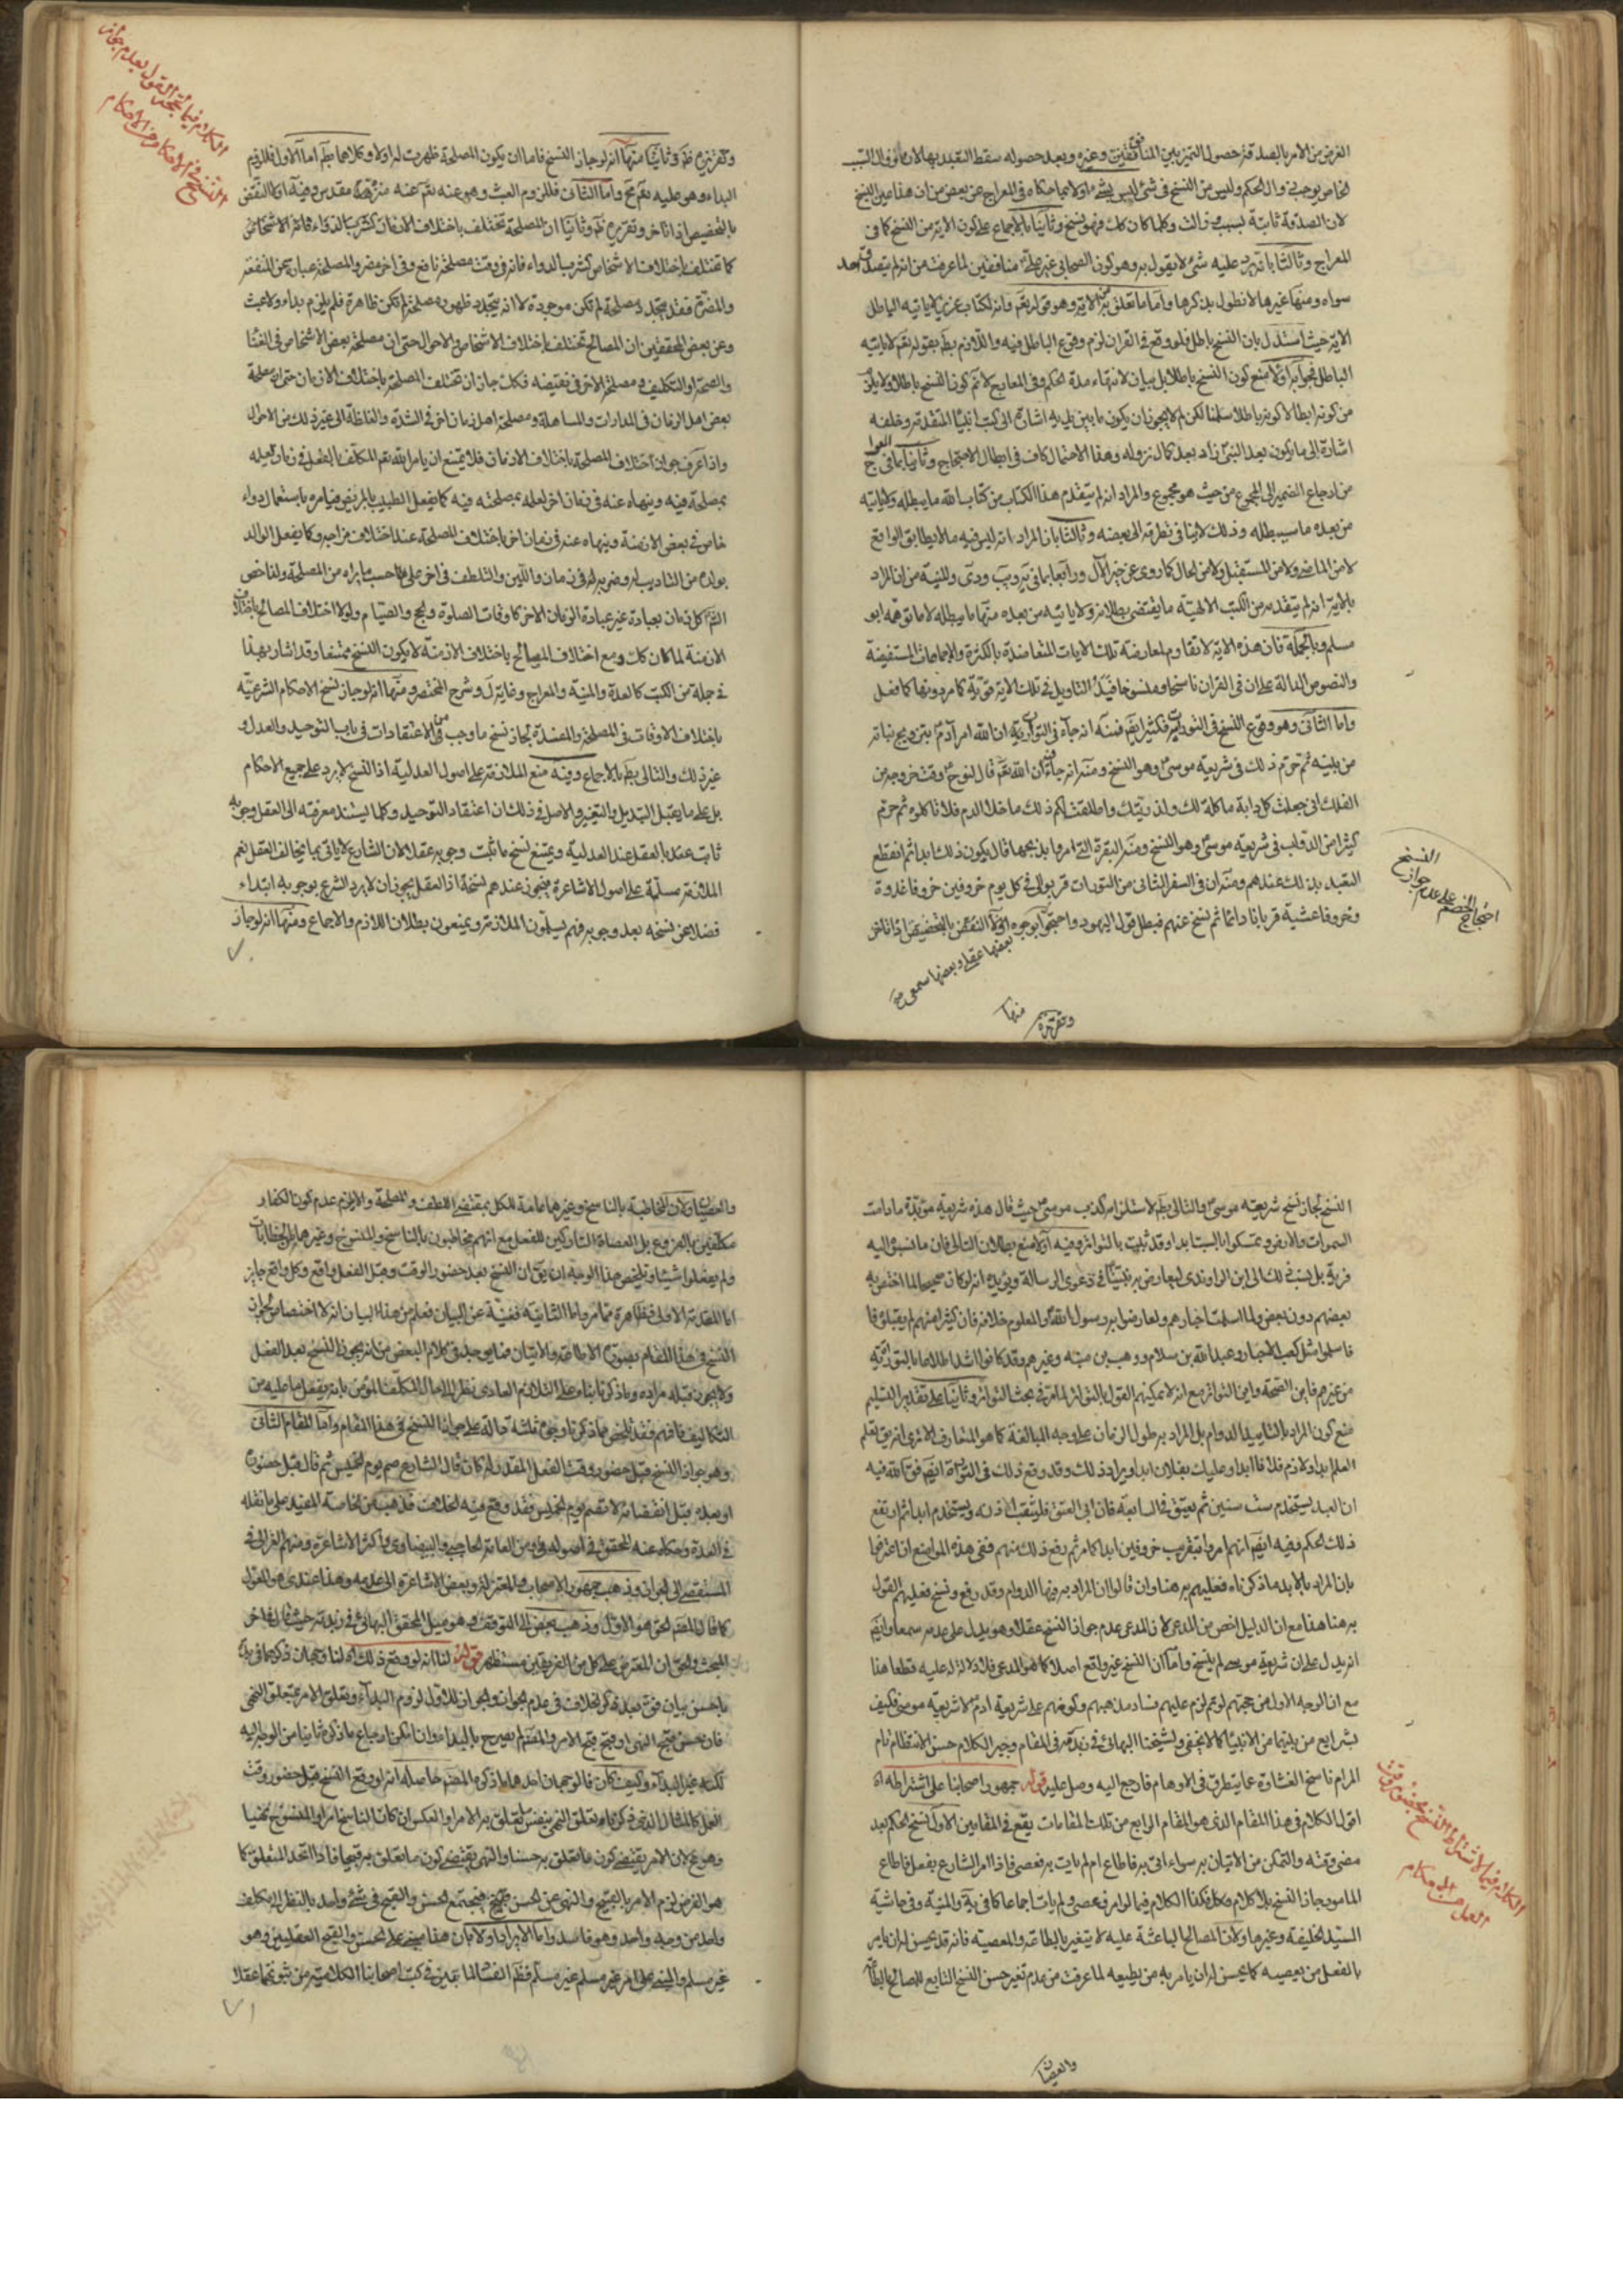 الغرض من الامر بالصدقة حصول التميز بين المنافقين وغيره وبعد حصوله سقط التعبد بها لان زوال السبب
لان الصدقة ثابتة بسبب زالت وكلما كان كك فهو نسخ وثانيا بالاجماع على كون الاية من النسخ كما في
المعراج وثالثا بانه يرد عليه شئ لا يقول به وهو كون الصحابي غير علي منافقين لما عرفت من انه لم يتصدق احد
سواه ومنها غيرها لا نطول بذكرها واما ما تعلق به من الاية وهو قوله تعم وانه لكتاب عزيز لا ياتيه الباطل
الاية حيث استدل بان النسخ باطل فلو وقع في القران لزم وقوع الباطل فيه واللازم بط بقوله تعم لا ياتيه
الباطل فجوابه اولا منع كون النسخ باطلا بل بيان لانتهاء مدة الحكم وفي المعارج لا نم كون النسخ باطلا ولا يلزم
من كونه ابطالا كونه باطلا سلمنا لكن لم لا يجوز ان يكون ما بين يديه اشارة الى كتب انبياء المتقدمة وخلفه
اشارة الى ما يكون بعد النبي زاد بعد كمال نزوله وهذا الاحتمال كاف في ابطال الاحتجاج وثانيا بما في ج
من ارجاع الضمير الى المجموع من حيث هو مجموع والمراد انه لم يتقدم هذا الكتاب من كتاب الله ما يبطله ولا ياتيه
من بعده ما سيبطله وذلك لا ينافي تطرقه الى بعضه وثالثا بان المراد انه ليس فيه ما لا يطابق الواقع
لا من الماضي ولا من المستقبل ولا من الحال كما روى عن خبر الآل ورابعا بما في يه ويب ودى والمنية من ان المراد
بالاية انه لم يتقدمه من الكتب الالهية ما يقتضي بطلانه ولا ياتيه من بعده منها ما يبطله لا ما توهمه ابو
مسلم وبالجملة فان هذه الاية لا تقاوم لمعارضة تلك الايات المتعاضدة بالكثرة والاجماعات المستفيضة
والنصوص الدالة على ان في القران ناسخا ومنسوخا
واما الثاني وهو وقوع النسخ في التورية فكثير ايضا فمنه انه جاء في التورية ان الله امر آدم بتزويج بناته
من بنيه ثم حرم ذلك في شريعة موسى وهو النسخ ومنه انه جاء فيها ان الله تعم قال لنوح وقت خروجه من
الفلك انى جعلت كل دابة ماكلة لك ولذريتك واطلقت لكم ذلك ما خلا الدم فلا تاكلوه ثم حرم
كثيرا من الدواب في شريعة موسى وهو النسخ ومنه البقرة التي امروا بذبحها قال يكون ذلك ابدا ثم انقطع
التعبد بذلك عندهم ومنه ان في السفر الثاني من التورات قربوا الى في كل يوم خروفين خروفا غدوة
وخروفا عشية قربانا دائما ثم نسخ عنهم فبطل قول اليهود واحتجوا بوجوه اولا النقض بالتخصيص اذا تاخر
بعضها عقلي وبعضها سمعي
احتجاج الخصم على عدم جواز النسخ
وتقريره منها
الكلام فيما يحتج القول بعدم جواز
النسخ في الاحكام من الاحكام
وتقريره ظ وثانيا منها انه لو جاز النسخ فاما ان يكون المصلحة ظهرت له اولا وكلاهما بط اما الاول فللزوم
البداء وهو عليه تعم مح واما الثاني فللزوم العبث وهو عنه تعم منزه
بالتخصيص اذا تاخر وتقريره ظ وثانيا ان المصلحة تختلف باختلاف الازمان كشرب الدواء
كما تختلف باختلاف الاشخاص كشرب الدواء فانه في وقت مصلحته نافع وفي اخر مضر والمصلحة عبارة عن المنفعة
والمضرة فقد يتجدد مصلحة لم تكن موجودة لا انه يتجدد ظهور مصلحة لم تكن ظاهرة فلم يلزم بداء ولا عبث
وعن بعض المحققين ان المصالح تختلف باختلاف الاشخاص والاحوال حتى ان مصلحة بعض الاشخاص في الغنا
والصحة او التكليف ومصلحة الاخر في نقيضه فكك جاز ان تختلف المصلحة باختلاف الازمان حتى ان مصلحة
بعض اهل الزمان في المدارات والمساهلة ومصلحة اهل زمان اخر في الشدة والغلظة الى غير ذلك من الاحوال
واذا عرف جواز اختلاف المصلحة باختلاف الازمان فلا يمتنع ان يامر الله تعم المكلف بالفعل في زمان لعلمه
بمصلحة فيه وينهاه عنه في زمان اخر لعلمه بمصلحته فيه كما يفعل الطبيب بالمريض فيامره باستعمال دواء
خاص في بعض الازمنة وينهاه عنه في زمان اخر باختلاف المصلحة عند اختلاف مزاجه وكما يفعل الوالد
بولده من التاديب له وضربه له في زمان واللين والتلطف في اخر على حسب ما يراه من المصلحة ولذا خص
الشرع كل زمان بعبادة غير عبادة الزمان الاخر كاوقات الصلوة والحج والصيام ولولا اختلاف المصالح باختلاف
الازمنة لما كان كك ومع اختلاف المصالح باختلاف الازمنة لا يكون النسخ ممتنعا وقد اشار بهذا
في جملة من الكتب كالعدة والمنية والمعراج وغاية ل وشرح المختصر ومنها انه لو جاز نسخ الاحكام الشرعية
باختلاف الاوقات في المصلحة والمفسدة لجاز نسخ ما وجب من الاعتقادات في باب التوحيد والعدل و
غير ذلك والتالى بط بالاجماع وفيه منع الملازمة على اصول العدلية اذا النسخ لا يرد على جميع الاحكام
بل على ما يقبل التبديل والتغير والاصل في ذلك ان اعتقاد التوحيد وكلما يستند معرفته الى العقل وجوبه
ثابت عندنا بالعقل عند العدلية ويمتنع نسخ ما ثبت وجوبه عقلا لان الشارع لا ياتى بما يخالف العقل نعم
الملازمة مسلمة على اصول الاشاعرة فيجوز عندهم نسخه اذ العقل يجوز ان لا يرد الشرع بوجوبه ابتداء
فضلا عن نسخه بعد وجوبه فهم يسلمون الملازمة ويمنعون بطلان اللازم والاجماع ومنها انه لو جاز
النسخ لجاز نسخ شريعة موسى والتالى بط لاستلزامه كذب موسى حيث قال هذه شريعة مؤبدة ما دامت
السموات والارض وتمسكوا بالسبت ابدا وقد ثبت بالتواتر وفيه اولا منع بطلان التالى فان ما نسبوا اليه
فرية بل ينسب ذلك الى ابن الراوندى ليعارض به نبينا في دعوى الرسالة ويؤيده انه لو كان صحيحا لما اختص به
بعضهم دون بعض ولما اسلمت احبارهم ولعارضوا به رسول الله والمعلوم خلافه فان كثيرا منهم
فاسلموا مثل كعب الاحبار وعبد الله بن سلام ووهب بن منبه وغيرهم وقد كانوا اشد اطلاعا بالتورية
من غيرهم فاين الصحة واين التواتر مع انه لا يمكنهم القول بالتواتر لما مر في بحث التواتر وثانيا على تقدير التسليم
منع كون المراد بالتابيد الدوام بل المراد به طول الزمان على وجه المبالغة كما هو المتعارف الا ترى انه يق تعلم
العلم ابدا ولازم فلانا ابدا وعليك بفلان ابدا ويراد ذلك وقد وقع ذلك في التورية ايضا
ان العبد يستخدم ست سنين ثم يعتق في السابعة فان ابى العتق فليثقب اذنه ويستخدم ابدا ثم ارتفع
ذلك الحكم وفيه ايضا انهم امروا بتقريب خروفين ابدا كما مر ثم رفع ذلك منهم ففي هذه المواضع اذا اعترفوا
بان المراد بالابد ما ذكرناه فعليهم به هنا وان قالوا ان المراد به فيها الدوام وقد رفع ونسخ فعليهم القول
به هنا هذا مع ان الدليل اخص من المدعى لان المدعى عدم جواز النسخ عقلا وهو يدل على عدمه سمعا وايضا
انه يدل على ان شريعة موسى لم ينسخ واما ان النسخ غير واقع اصلا كما هو المدعى فلا دلالة له عليه قطعا هذا
مع ان الوجه الاول من حججهم لو تم لزم عليهم فساد مذهبهم وكونهم على شريعة ادم لا شريعة موسى فكيف
بشرايع من بينهما من الانبياء كما لا يخفى ولشيخنا البهائي في زبدته في المقام وجيز الكلام حسن الانتظام تام
المرام ناسخ الغشاوة عما يتطرق في الاوهام فارجع اليه وصل عليه قوله جمهور اصحابنا على اشتراطه اه
اقول الكلام في هذا المقام الذى هو المقام الرابع من تلك المقامات يقع في المقامين الاول نسخ الحكم بعد
مضى وقته والتمكن من الاتيان به سواء اتى به فاطاع ام لم يات به فعصى فاذا امر الشارع بفعل فاطاع
المامور جاز النسخ بلا كلام وكذا الكلام فيما لو امر فعصى ولم يات اجماعا كما في ية والمنية وفي حاشية
السيد الخليفة وغيرها ولان المصالح الباعثة عليه لا يتغير بالطاعة والمعصية فانه قد يحسن له ان يامر
بالفعل من يعصيه كما يحسن له ان يامر به من يطيعه لما عرفت من عدم تغير حسن النسخ التابع للمصالح بالطاعة
والعصيان
الكلام فيما لاشتراط النسخ بحضور وقت
العمل من الاحكام
والعصيان ولان المخاطبة بالناسخ وغيرها عامة للكل بمقتضى اللطف والمصلحة والا لزم عدم كون الكفار
مكلفين بالفروع بل العصاة التاركين للفعل مع انهم مخاطبون بالناسخ والمنسوخ وغيرهما من الخطابات
ولم يفعلوا شيئا وتلخيص هذا الوجه ان يق ان النسخ بعد حضور الوقت وقبل الفعل واقع وكل واقع جايز
اما المقدمة الاولى فظاهرة مما مر واما الثانية فغنية عن البيان فعلم من هذا البيان انه لا اختصاص لجواز
النسخ في هذا المقام بصورة الاطاعة والاتيان فما يوجد في كلام البعض من انه يجوز النسخ بعد الفعل
ولا يجوز قبله مراده ما ذكرنا بناء على التلازم العادى نظرا الى حال المكلف المؤمن بانه يفعل ما عليه من
التكاليف فافهم فقد تلخص مما ذكرنا وجوه ثلثة دالة على جواز النسخ في هذا المقام واما المقام الثاني
وهو جواز النسخ قبل حضور وقت الفعل المقدر له كان قال الشارع صم يوم الخميس ثم قال قبل حضوره
او بعده قبل انقضائه لا تصم يوم الخميس فقد وقع فيه الخلاف فذهب من الخاصة المفيد على ما نقله
في العدة وحكاه عنه المحقق في اصوله ومن العامة الحاجبي والبيضاوى واكثر الاشاعرة ومنهم الغزالى في
المستصفى الى الجواز وذهب جمهور الاصحاب والمعتزلة وبعض الاشاعرة الى عدمه وهذا عندى هو القول
كما قال المصم الحق هو الاول وذهب بعض الى التوقف وهو ميل المحقق البهائي في زبدته حيث قال في اخر
المبحث والحق ان للمعترض على كل من الفريقين مستظهر قوله لنا انه لو وقع ذلك اه لنا وجهان ذكرهما في ية
باحسن بيان فوق بعد ذكر الخلاف في عدم الجواز والجواز للاول لزوم البداء وتعلق الامر بمتعلق النهى
فان حسن قبح النهى او قبح قبح الامر والمصم لم يصرح بالبداء وان امكن ارجاع ما ذكره ثانيا من الوجه اليه
لكنه غير البداء وكيف كان فالوجهان احدهما ما ذكره المصم حاصله انه لو وقع النسخ قبل حضور وقت
العمل كالمثال الذى ذكرناه تعلق النهى بنفس ما تعلق به الامر او العكس ان كان الناسخ امرا والمنسوخ نهيا
وهو مح لان الامر يقتضى كون ما تعلق به حسنا والنهى يقتضى كون ما تعلق به قبيحا فاذا اتحد المتعلق كما
هو الفرض لزم الامر بالقبيح والنهى عن الحسن فيجتمع الحسن والقبح في شئ واحد بالنظر الى مكلف
واحد من وجه واحد وهو فاسد واما الايراد اولا بان هذا مبنى على الحسن والقبح العقليين وهو
غير مسلم والمبنى على امر غير مسلم غير مسلم فظ الفساد لما بين في كتب اصحابنا الكلامية من ثبوتهما عقلا